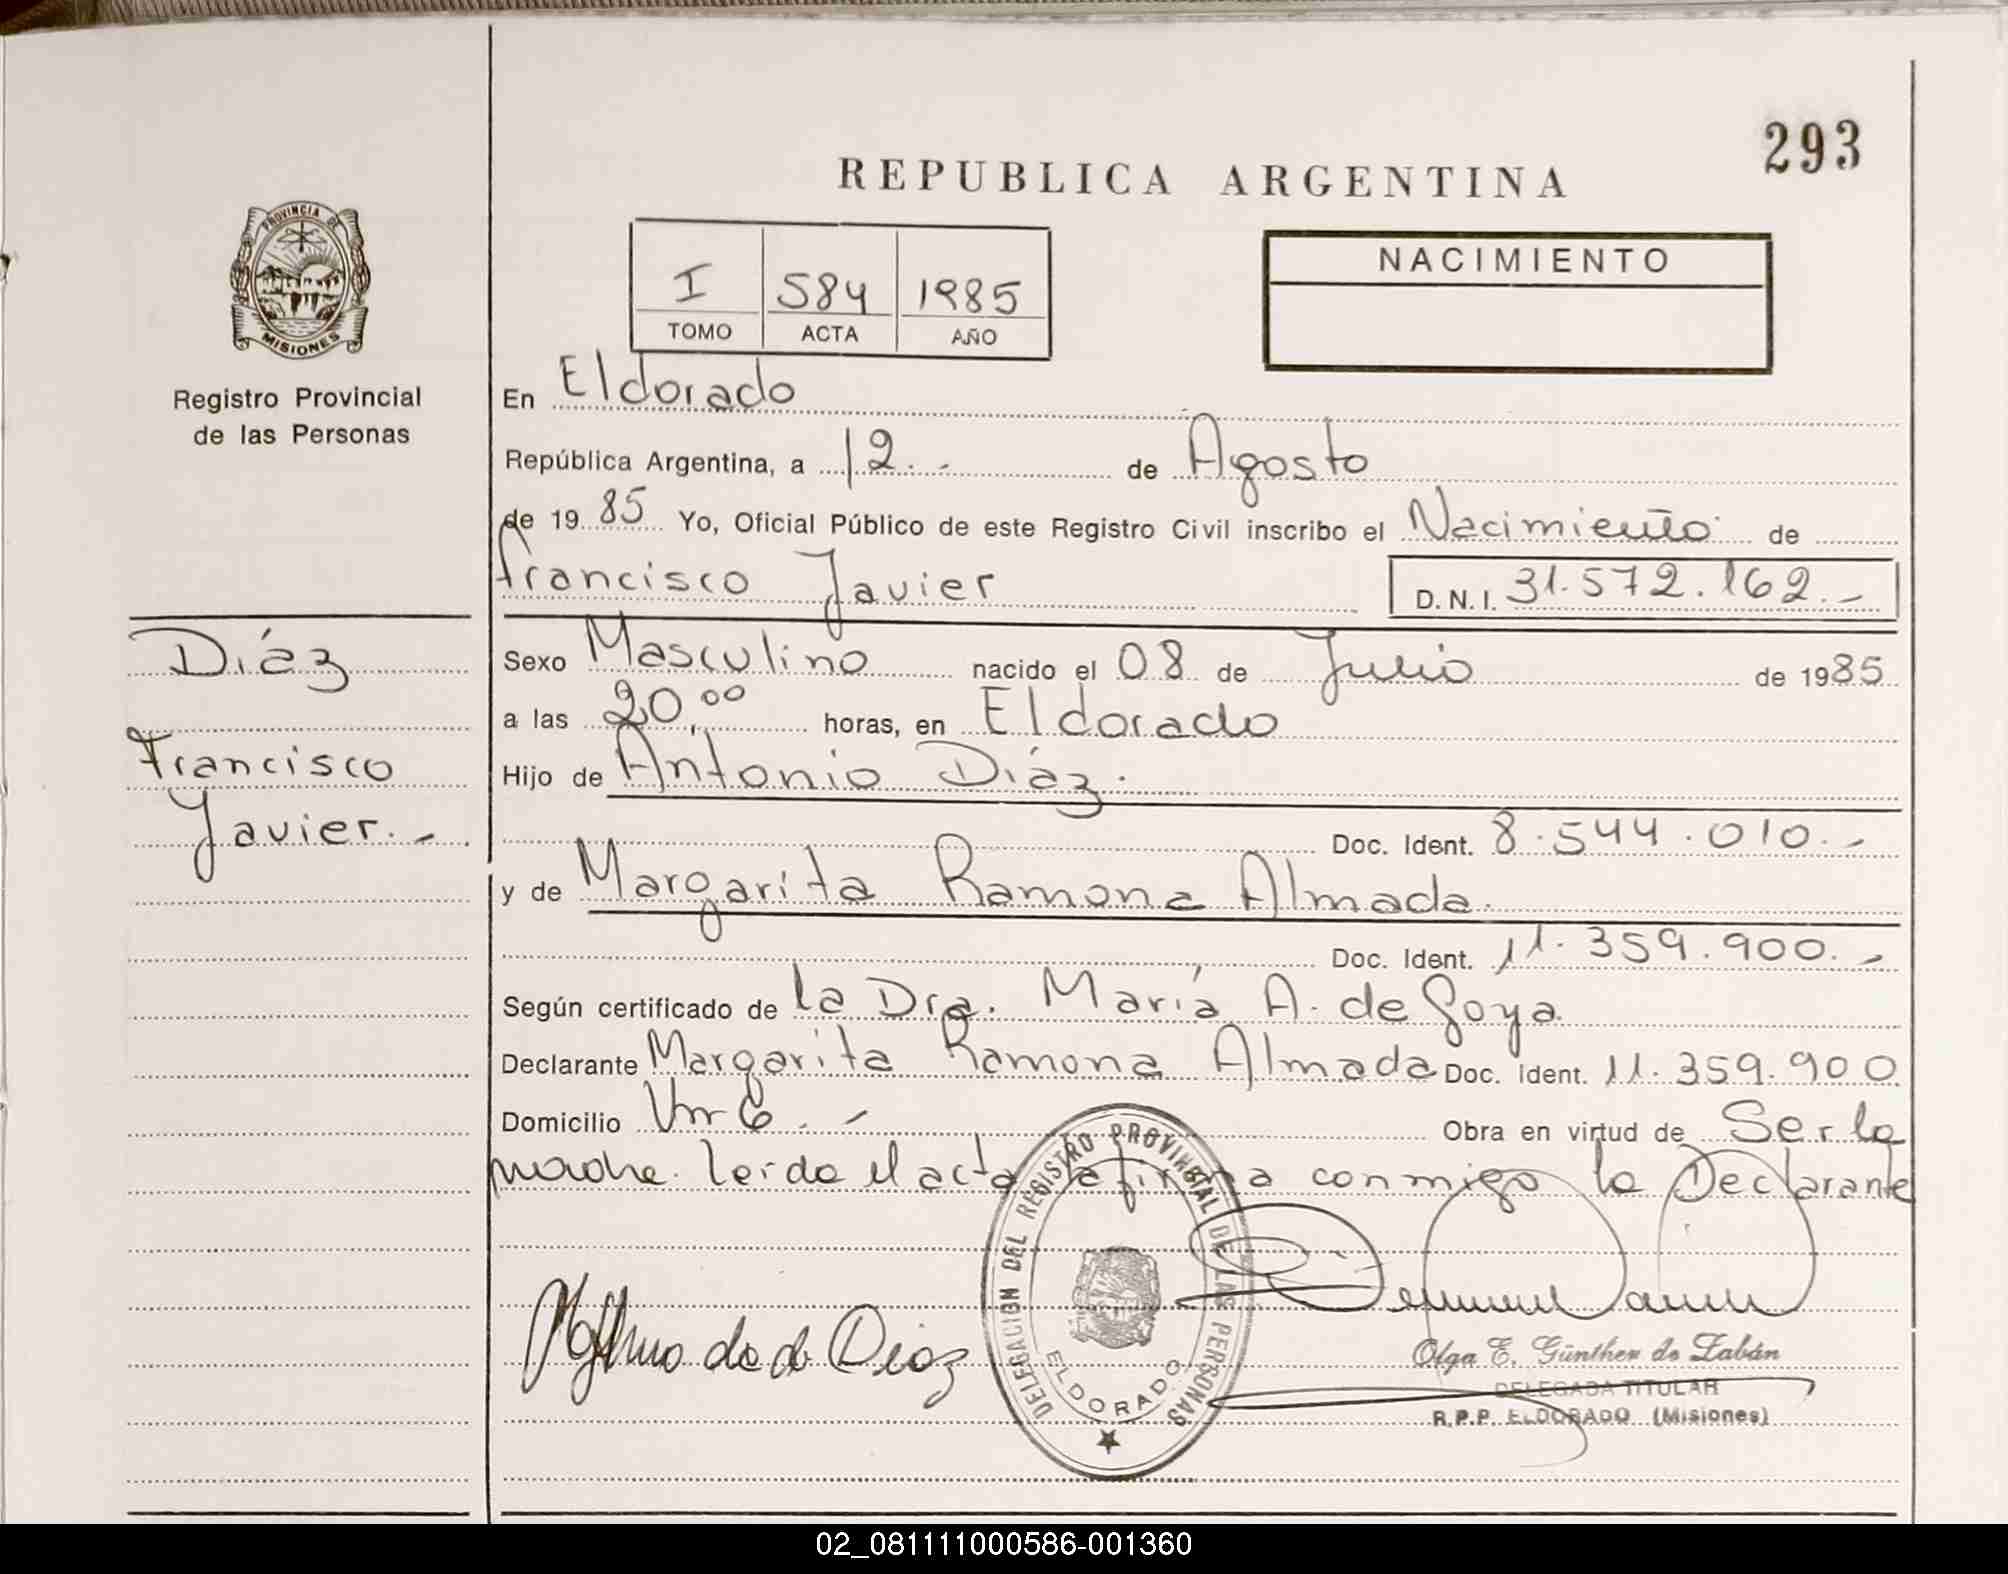 293
REPUBLICA ARGENTINA
PROVINCIA DE
MISIONES
Registro Provincial
de las Personas
I 584 1985
TOMO ACTA AÑO
NACIMIENTO
En Eldorado
República Argentina, a 12.- de Agosto
de 1985 Yo, Oficial Público de este Registro Civil inscribo el Nacimiento de
Francisco Javier D.N.I. 31.572.162.-
Díaz
Francisco
Javier.-
Sexo Masculino nacido el 08 de Julio de 1985
a las 20,00 horas, en Eldorado
Hijo de Antonio Díaz.
Doc. Ident. 8.544.010.-
y de Margarita Ramona Almada.
Doc. Ident. 11.359.900.-
Según certificado de la Dra. María A. de Goya
Declarante Margarita Ramona Almada Doc. Ident. 11.359.900
Domicilio Km 6.- Obra en virtud de Ser la
madre. Leída el acta la firma conmigo la Declarante
DELEGACION DEL REGISTRO PROVINCIAL DE LAS PERSONAS
ELDORADO
de Diaz
Olga E. Günther de Zabán
DELEGADA TITULAR
R.P.P. ELDORADO (Misiones)
02_081111000586-001360